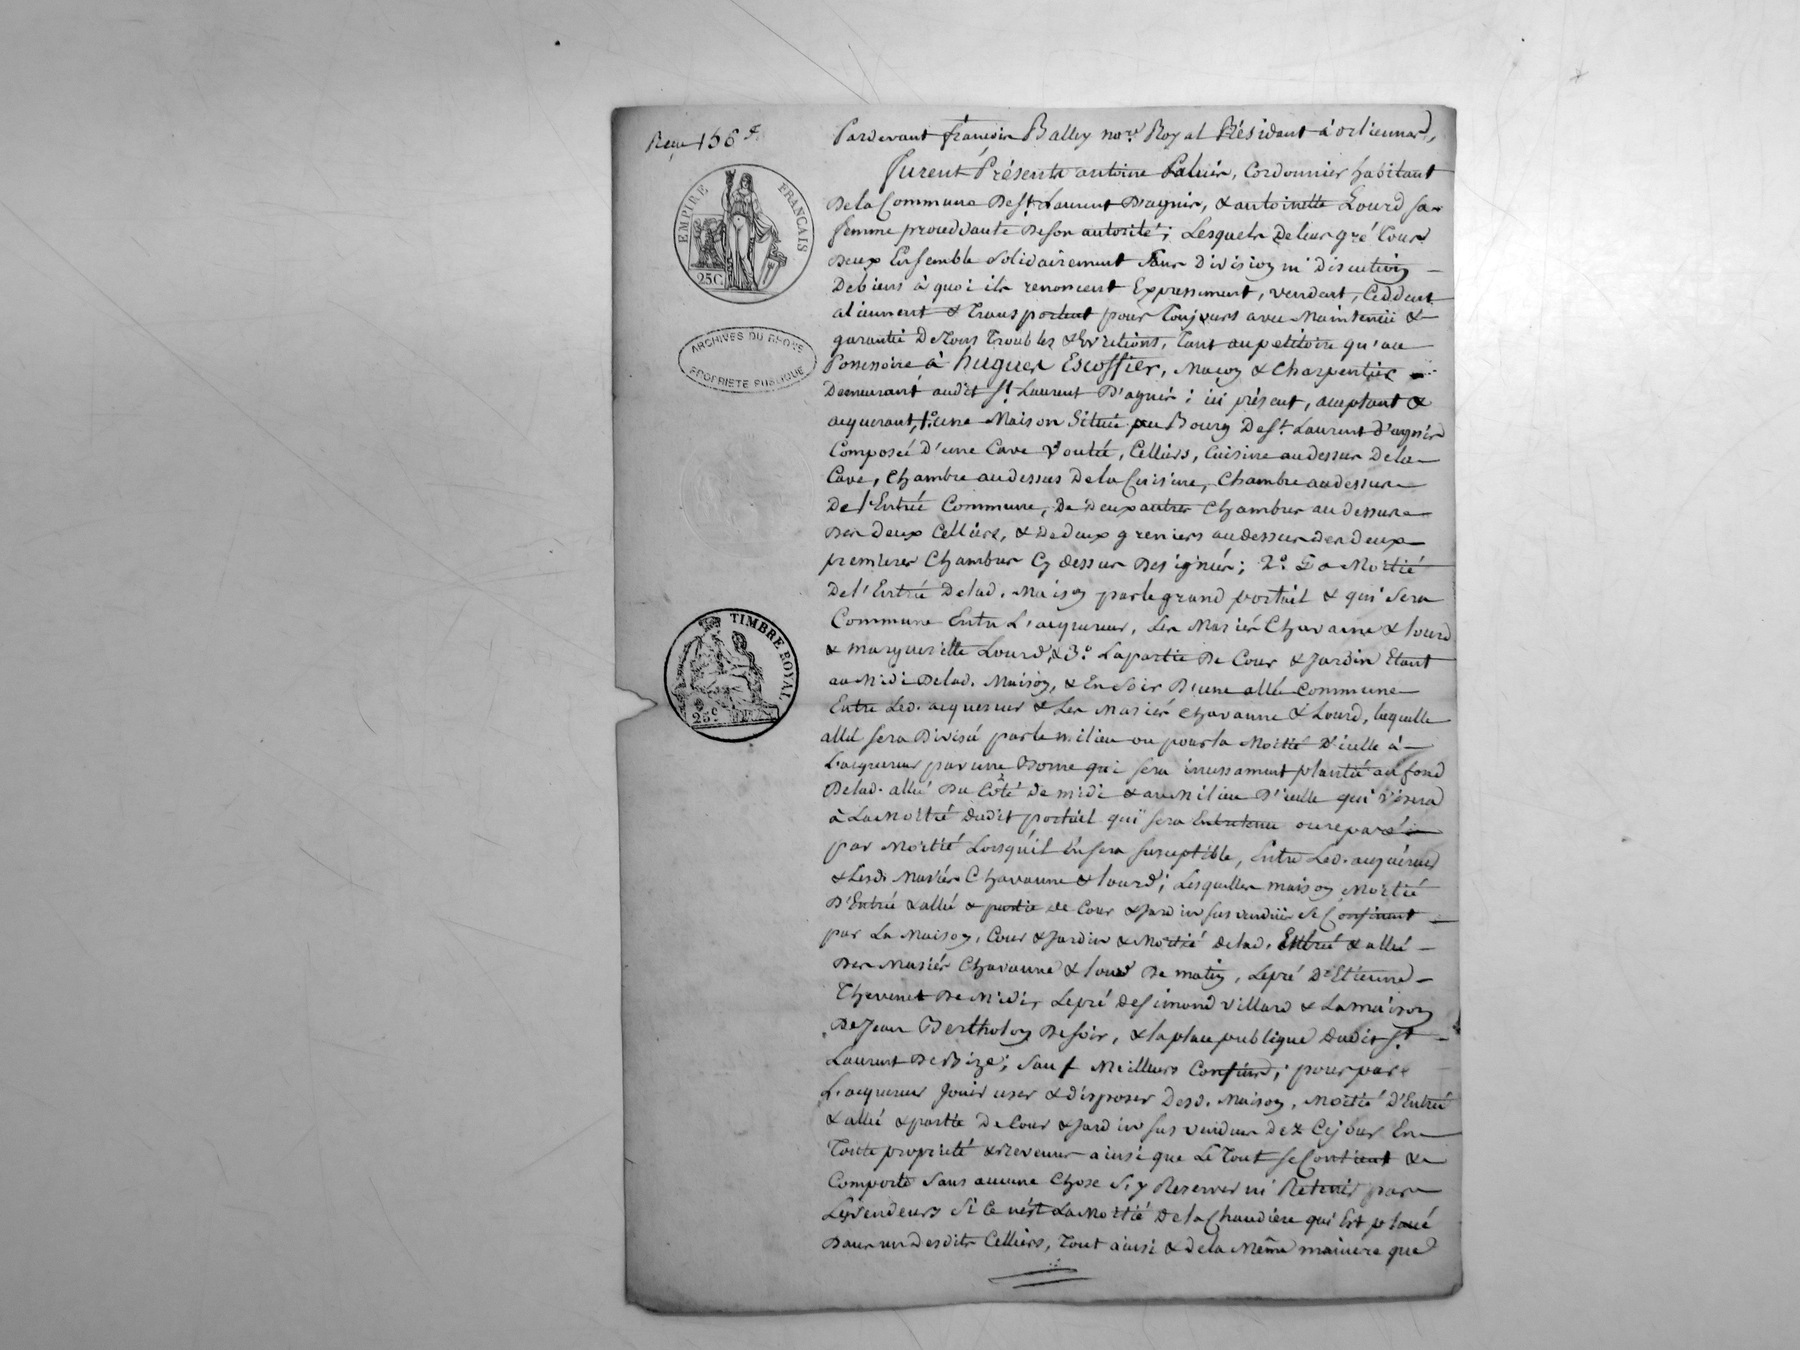 Reçu 156 f.
EMPIRE FRANÇAIS
25 C.
ARCHIVES DU RHONE
PROPRIETE PUBLIQUE
TIMBRE ROYAL
25 c
Pardevant françois Balley nore Royal Résidant à orlienas,
furent Présents antoine Palmier, Cordonnier habitant
De la Commune De St Laurent D'agnir, & antoinette Lourd sa
femme procedante De son autorité; Lesquels De leur gré Tous
Deux Ensemble solidairement sans Division ni Discution
De biens à quoi ils renoncent Expressement, vendent, Ceddent
aliennent & transportent pour toujours avec Maintenüe &
garantie De tous Troubles & Evictions, tant au petitoire qu'au
Possessoire à hugues Escoffier, Maçon & Charpentier
Demeurant audit St Laurent D'agnir; ici présent, acceptant &
acquerant, 1o. une Maison Située au Bourg De St. Laurent d'agnir
Composée D'une Cave Voutée, Celliers, Cuisine au dessus De la
Cave, Chambre au dessus De la Cuisine, Chambre au dessus
De l'Entrée Commune, De Deux autres Chambres au dessus
Des deux Celliers, & De deux greniers au dessus des deux
premieres Chambres Cy dessus Designés; 2o. La Moitié
De l'Entrée De lad. Maison par le grand portail & qui Sera
Commune Entre L'acquereur, Les Mariés Chavanne & Lourd
& marguerite Lourd, & 3o. La partie De Cour & Jardin Etant
au Midi De lad. Maison, & En Soir D'une allée Commune
Entre Led. acquereur & Les Mariés Chavanne & Lourd, laquelle
allée sera Divisée par le milieu ou pour la Moitié D'icelle à
L'acquereur par une Borne qui sera incessament plantée au fond
De lad. allée Du Côté de midi & au Milieu D'icelle qui visera
à La Moitié dudit portail qui sera Entretenu ou reparé
par Moitié Lorsqu'il En sera susceptible, Entre Led. acquéreur
& Lesd. Mariés Chavanne & Lourd; Lesquelles maison, Moitié
D'Entrée & allée & partie de Cour & Jardin sus vendües se Confinent
par La Maison, Cour & Jardin & Moitié de lad. Entrée & allée
Des Mariés Chavanne & Lourd De matin, Le pré D'Etienne
Thevenet De Midi, Le pré de Simond Villard & La maison
De Jean Bertholon De soir, & la place publique dudit St
Laurent De Bize; Sauf Meilleurs Confins; pour par
L'acquereur Jouir user & disposer Desd. Maison, Moitié D'Entrée
& allée & partie De Cour & Jardin sus vendues dez Cejour En
Toute propriété & Revenus ainsi que Le Tout se Contient &
Comporte Sans aucune Chose S'y Reserver ni Retenir par
Les vendeurs Si Ce n'est La Moitié De la Chaudiere qui Est placé
Dans un Desdits Celliers, Tout ainsi & de la Même maniere que